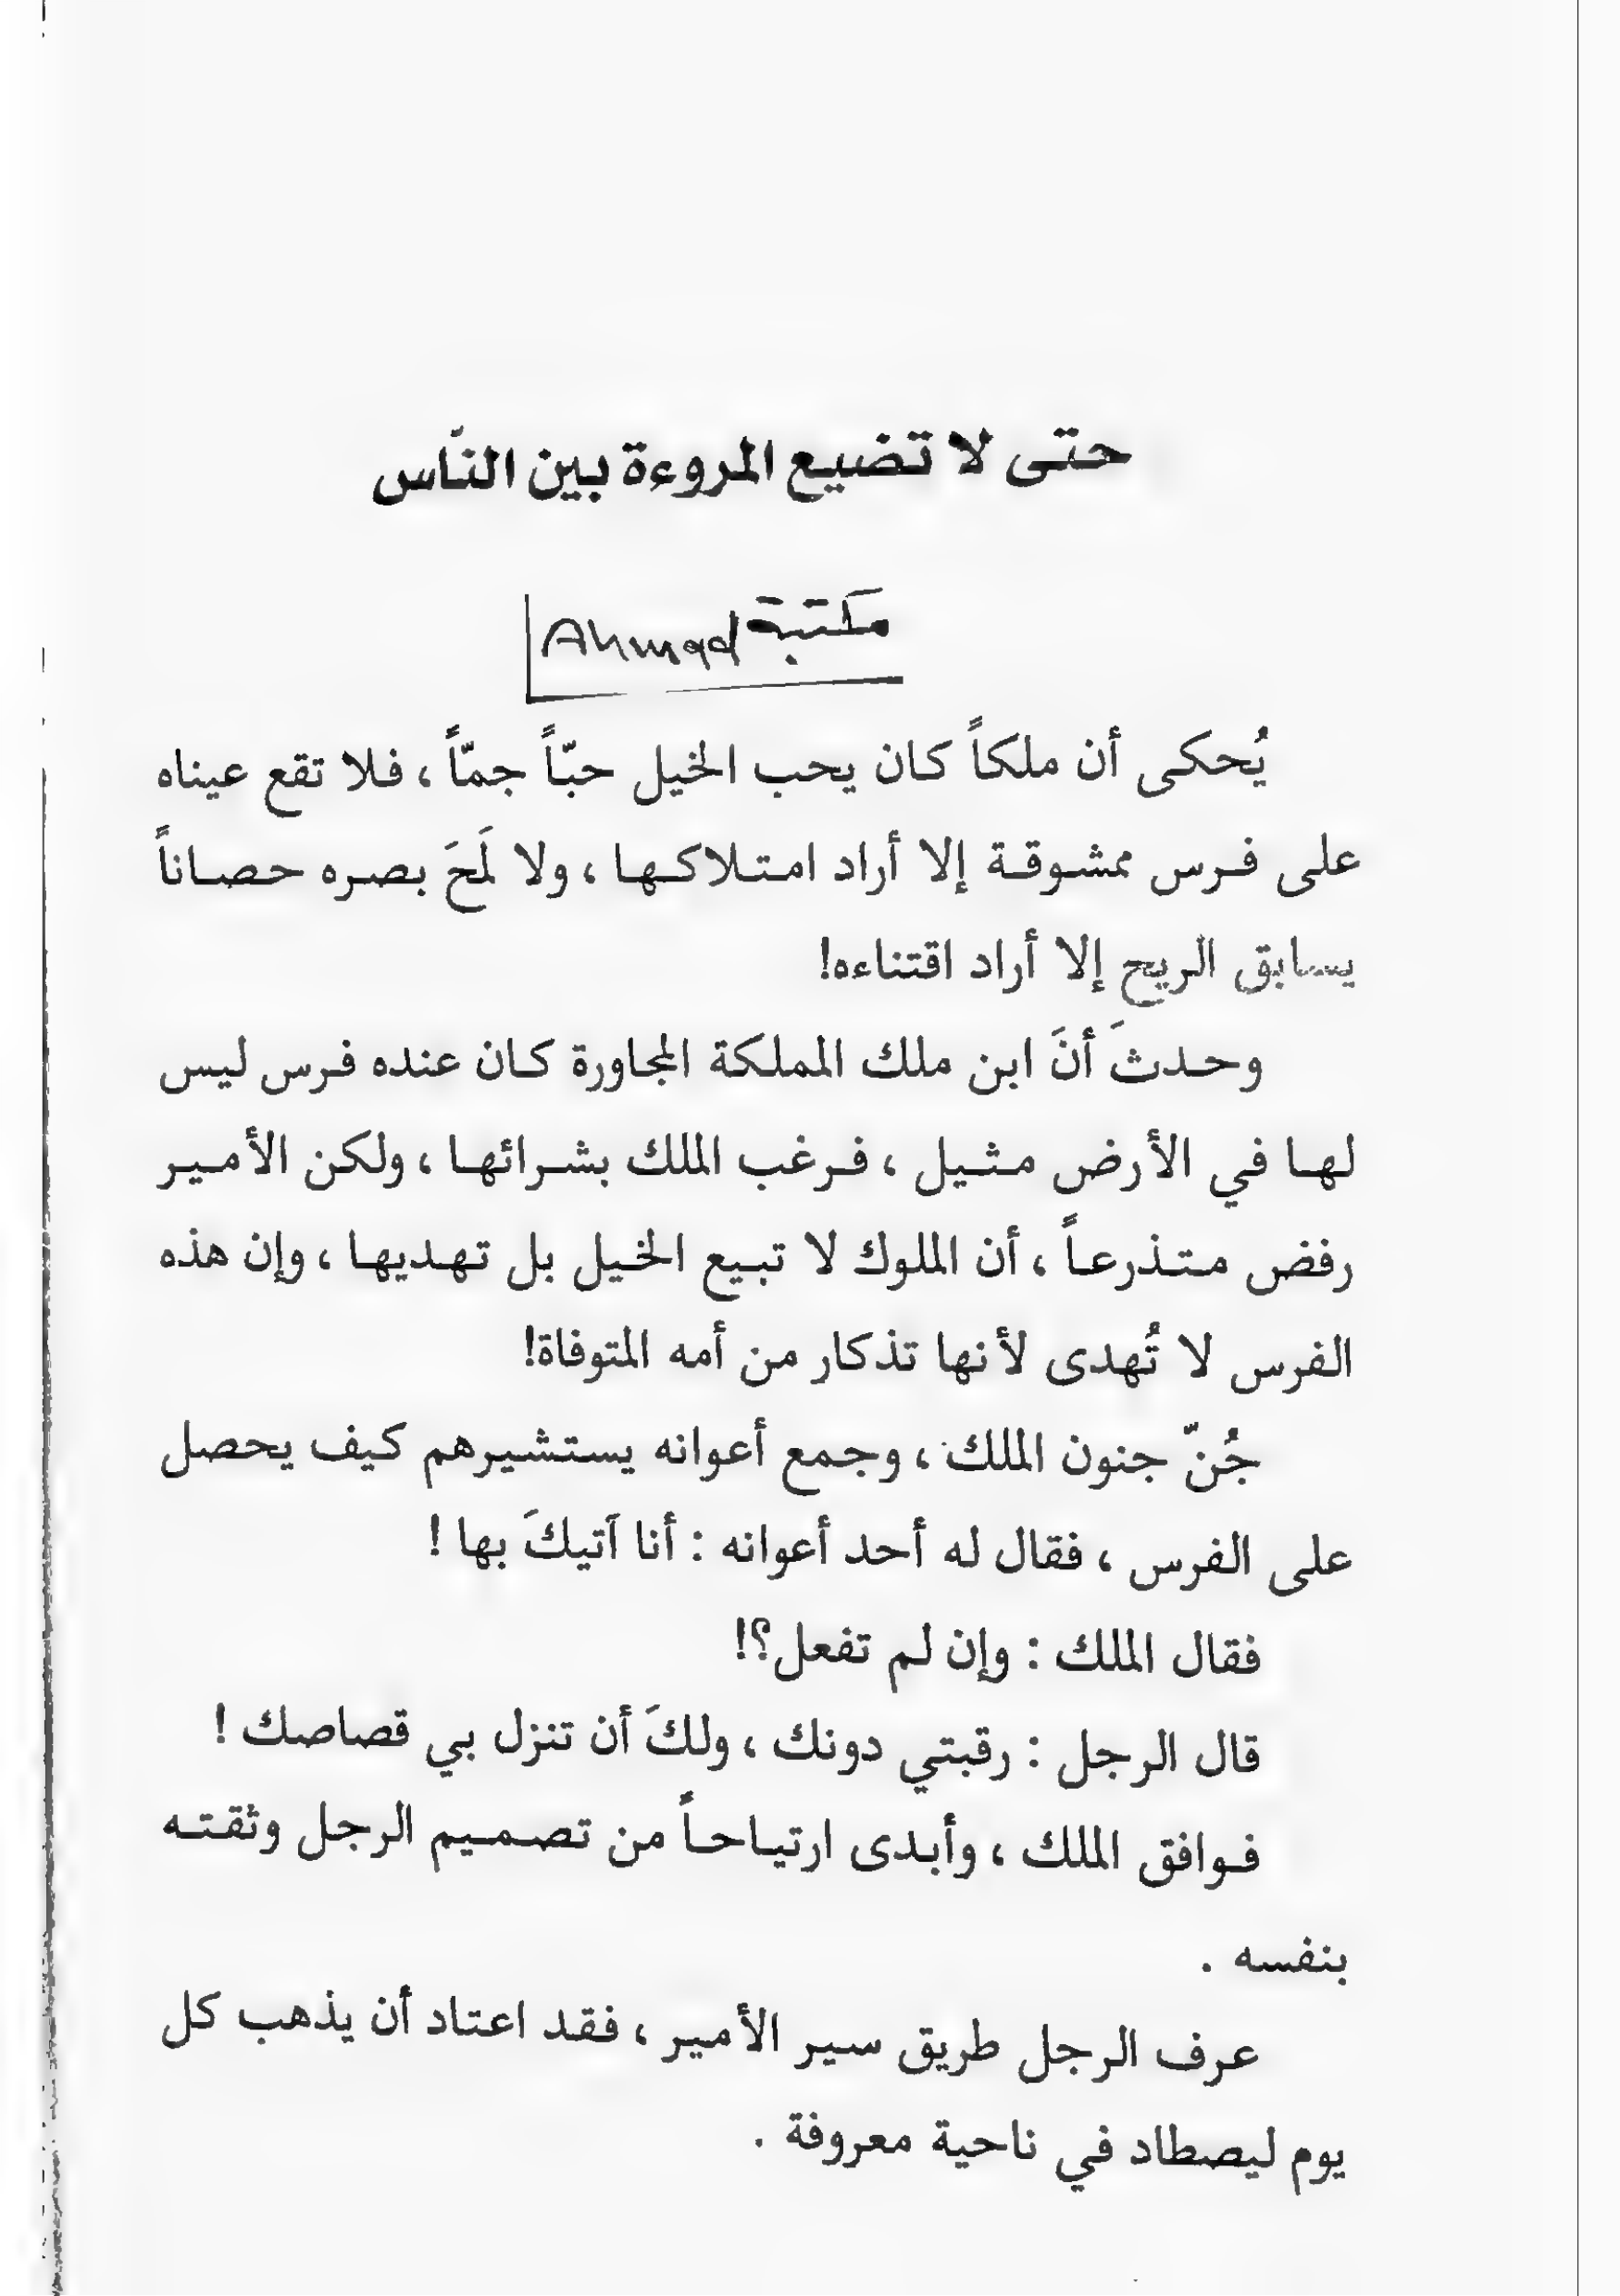 حتى لا تضيع المروءة بين النّاس
مكتبة Ahmad
يُحكى أن ملكاً كان يحب الخيل حبّاً جمّاً ، فلا تقع عيناه
على فرس ممشوقة إلا أراد امتلاكها ، ولا لَمحَ بصره حصاناً
يسابق الريح إلا أراد اقتناءه!
وحدثَ أنَ ابن ملك المملكة المجاورة كان عنده فرس ليس
لها في الأرض مثيل ، فرغب الملك بشرائها ، ولكن الأمير
رفض متذرعاً ، أن الملوك لا تبيع الخيل بل تهديها ، وإن هذه
الفرس لا تُهدى لأنها تذكار من أمه المتوفاة!
جُنّ جنون الملك ، وجمع أعوانه يستشيرهم كيف يحصل
على الفرس ، فقال له أحد أعوانه : أنا آتيكَ بها !
فقال الملك : وإن لم تفعل؟!
قال الرجل : رقبتي دونك ، ولكَ أن تنزل بي قصاصك !
فوافق الملك ، وأبدى ارتياحاً من تصميم الرجل وثقته
بنفسه .
عرف الرجل طريق سير الأمير ، فقد اعتاد أن يذهب كل
يوم ليصطاد في ناحية معروفة .